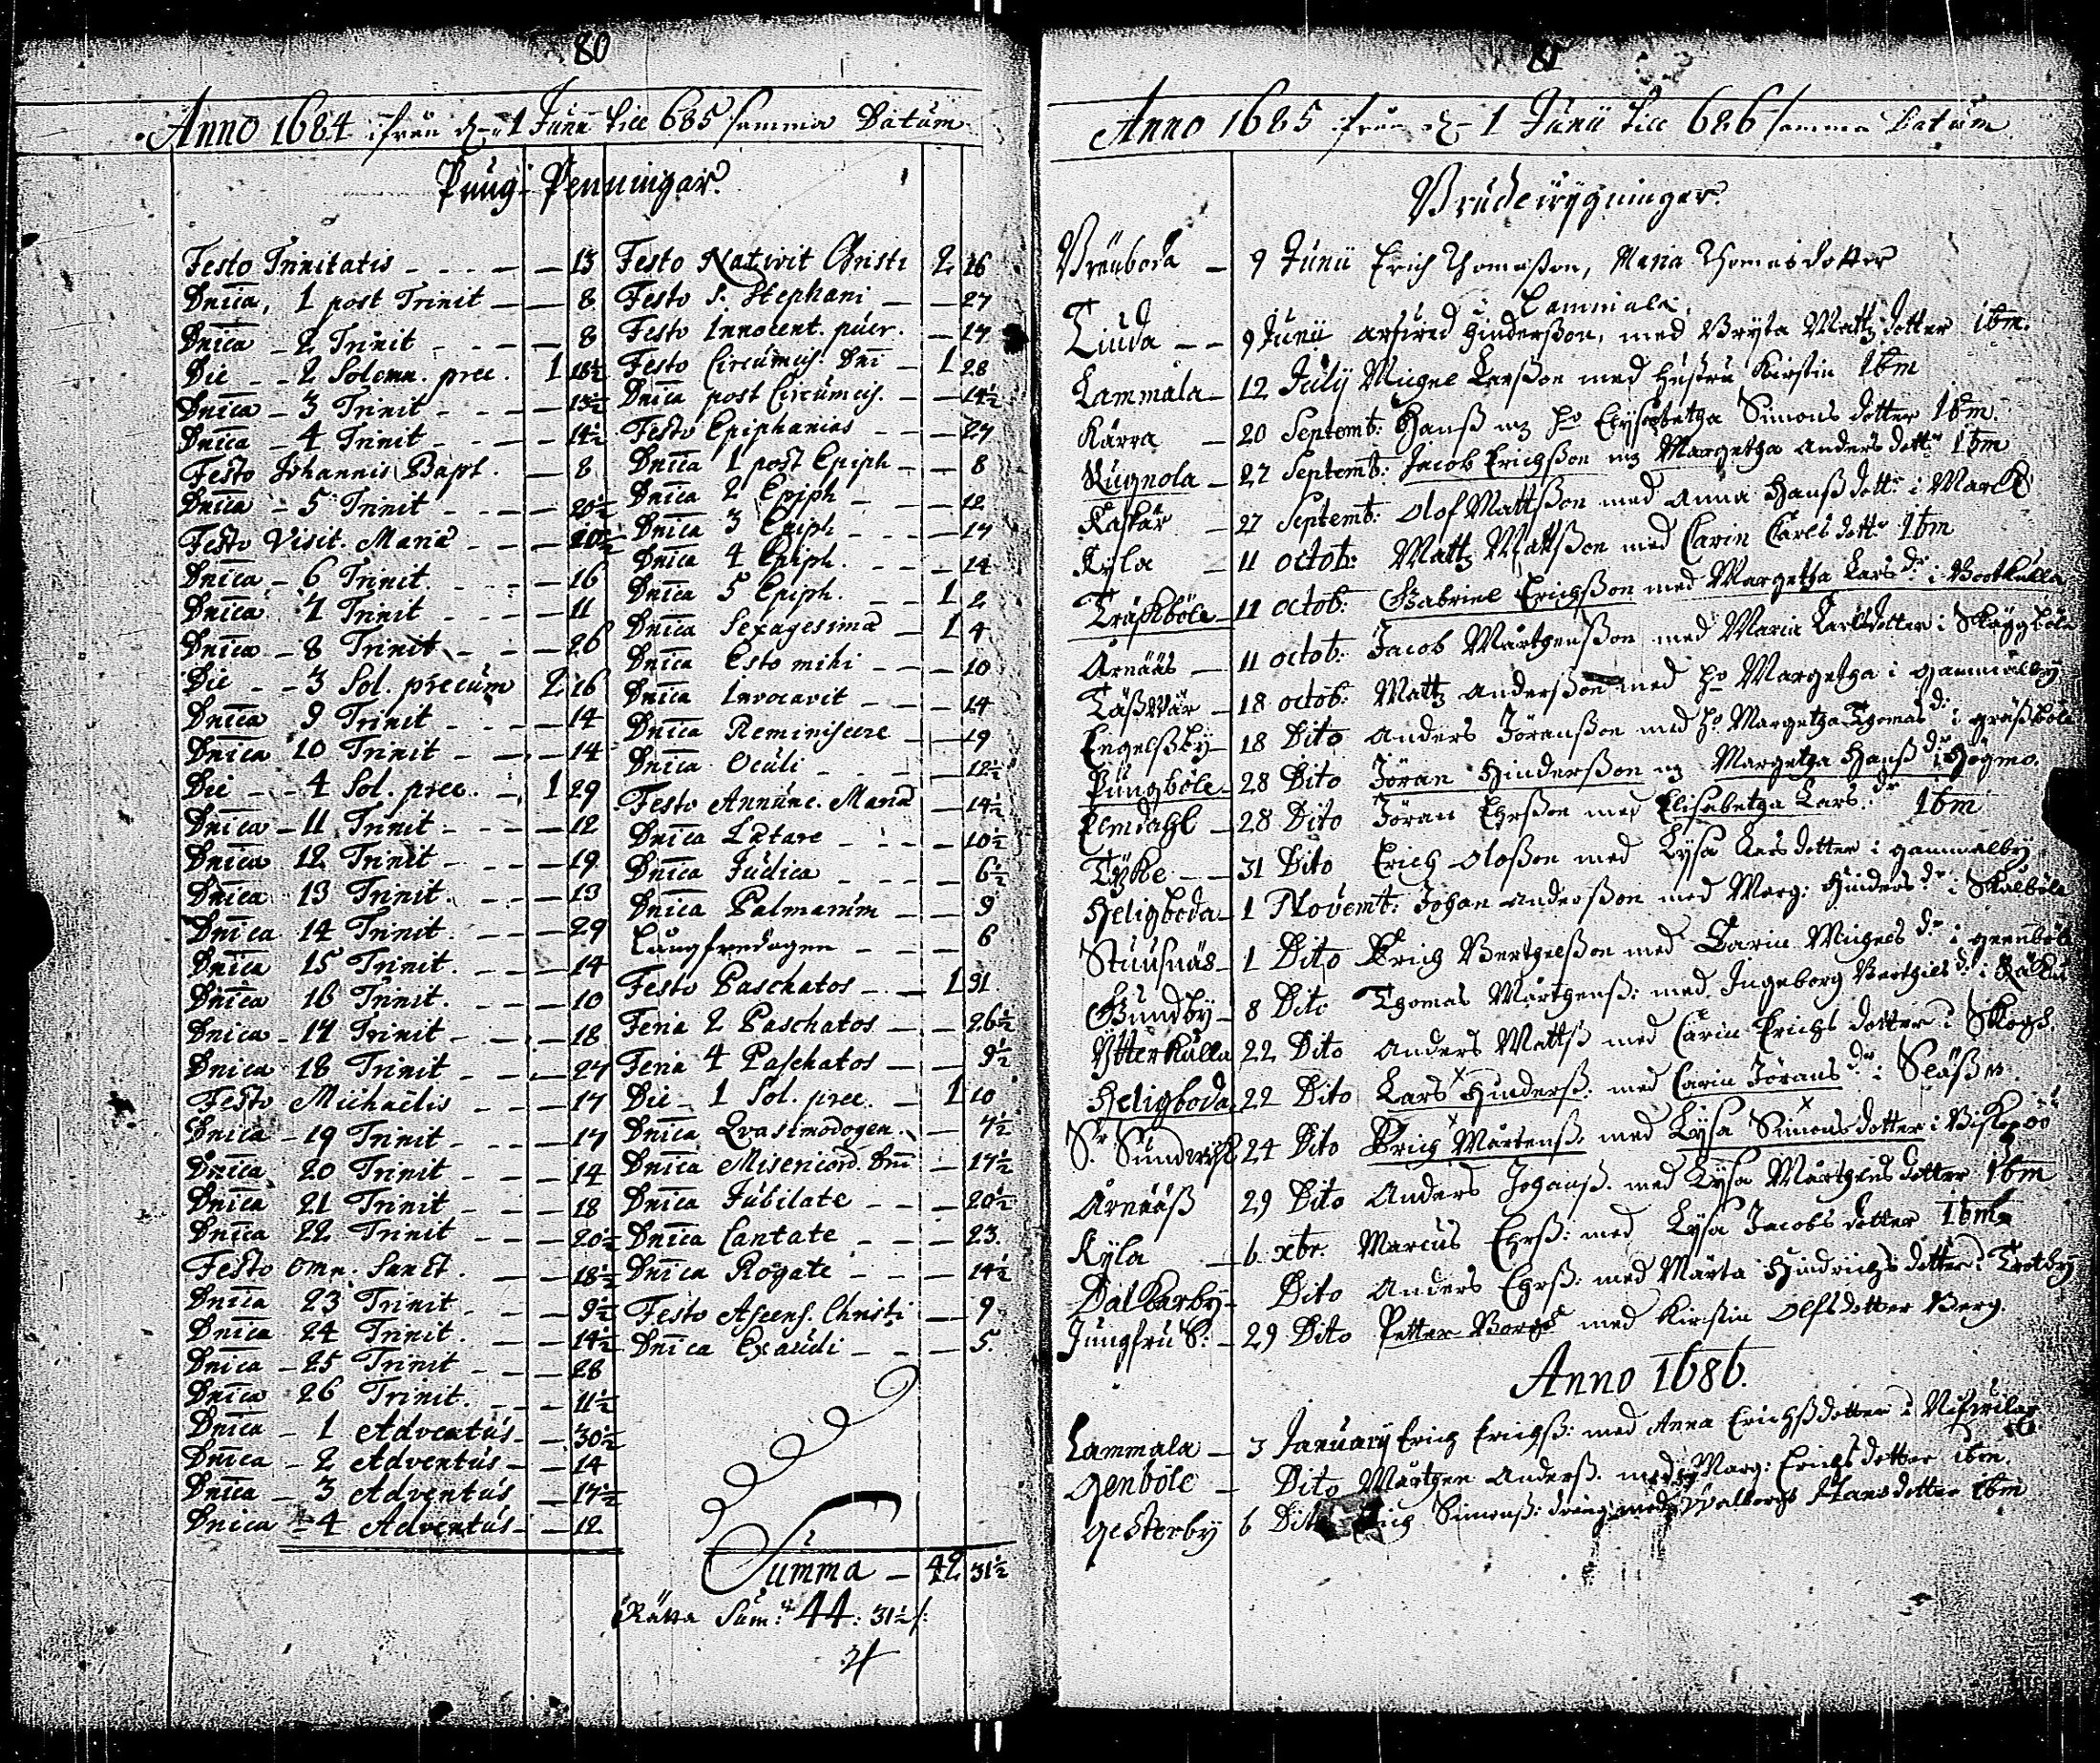 80
Anno 1684 ifrån d. 1 Junii till 685 samma Datum
Pung-Penningar.
Festo Trinitatis - - - - 13
Dnica, 1 post Trinit - - 8
Dnica - 2 Trinit - - - 8
Die - - 2 Solemn. prec. 1 18½
Dnica - 3 Trinit - - - 13½
Dnica - 4 Trinit - - - 14½
Festo Johannis Bapt. - 8
Dnica - 5 Trinit - - - 20½
Festo Visit. Maria - - - 20½
Dnica - 6 Trinit - - - 16
Dnica 7 Trinit - - - 11
Dnica - 8 Trinit - - - 26
Die - - 3 Sol. precum 2 16
Dnica 9 Trinit - - - 14
Dnica 10 Trinit - - - 14
Die - - 4 Sol. prec. - 1 29
Dnica - 11 Trinit - - - 12
Dnica 12 Trinit - - - 19
Dnica 13 Trinit - - - 13
Dnica 14 Trinit - - - 29
Dnica 15 Trinit. - - - 14
Dnica 16 Trinit. - - - 10
Dnica - 17 Trinit - - - 18
Dnica 18 Trinit - - - 27
Festo Michaëlis - - - 17
Dnica - 19 Trinit - - - 17
Dnica 20 Trinit - - - 14
Dnica 21 Trinit - - - 18
Dnica 22 Trinit - - - 20½
Festo Omn. Sanct. - - 18½
Dnica 23 Trinit - - - 9½
Dnica 24 Trinit. - - - 14½
Dnica - 25 Trinit - - - 28
Dnica 26 Trinit. - - - 11½
Dnica - 1 Adventus - - 30½
Dnica - 2 Adventus - - 14
Dnica - 3 Adventus - 17½
Dnica - 4 Adventus - - 12
Festo Nativit Christi 2 16
Festo S. Stephani - - 27
Festo Innocent. puer. - 17
Festo Circumcis. Dni - 1 28
Dnica post Circumcis. - - 14½
Festo Epiphanias - - - 27
Dnica 1 post Epiph - - 8
Dnica 2 Epiph - - - 12
Dnica 3 Epiph - - - 17
Dnica 4 Epiph. - - - 14
Dnica 5 Epiph. - - 1 2
Dnica Sexagesima - 1 4
Dnica Esto mihi - - - 10
Dnica Invocavit - - - 14
Dnica Reminiscere - - 19
Dnica Oculi - - - - 12½
Festo Annunc. Maria - 14½
Dnica Lätare - - - - 10½
Dnica Judica - - - - 6½
Dnica Palmarum - - 9
Långfredagen - - - 6
Festo Paschatos - - 1 31
Feria 2 Paschatos - - 26½
Feria 4 Paschatos - - 9½
Die - 1 Sol. prec. - 1 10
Dnica Qvasimodogen. - 7½
Dnica Misericord. Dni - 17½
Dnica Jubilate - - - 20½
Dnica Cantate - - - 23
Dnica Rogate - - - 14½
Festo Ascens. Christi - 9
Dnica Exaudi - - - 5
Summa - 42 31½
Rätta Sum: 44: 31½
81
Anno 1685 ifrån d. 1 Junii till 686 samma Datum
Brudewygninger.
Brenboda - 9 Junii Erich Thomasson, Maria Thomasdotter
i Lammala.
Linda - - 9 Junii Hindersson, med Bryta Mattzdotter ibm.
Lammala - 12 July Michel Larsson med hustru Kirstin ibm
Kärra - 20 Septemb: Hans Simonsdotter ibm
Rugnola - 27 Septemb: Jacob Erichsson Margetha Anders dott. ibm
27 Septemb: Olof Mattsson med Anna Hanssdott. i
Kyla - 11 octob: Mattz Mattsson med Carin Carlsdott. ibm
Träskböle - 11 octob: Gabriel Erichsson med Margetha Lars dr. i
Årnääs - 11 octob: Jacob Mårthensson med Maria Carlsdotter i Skäggböle
18 octob: Mattz Andersson med Margetha i Gammalby
Engelssby - 18 Dito Anders Jöransson med h. Margetha Thomas d. i
Pungböle - 28 Dito Jöran Hindersson Margetha Hanss dr. i Högmo.
28 Dito Jöran med Elisabetha Lars dr. ibm
- - 31 Dito Erich Olosson med Lysa Larsdotter i Gammalby
Heligboda - 1 Novemb: Johan Andersson med Marg: Hinders dr. i Skalböle
Stuusnäs - 1 Dito Erich Berthelsson med Carin Michels dr. i
Gundby - 8 Dito Thomas Mårthenss: med Ingeborg Berthils d. i
Ytterkulla 22 Dito Anders Mattss med Carin Erichsdotter i
Heligboda 22 Dito Lars Hinderss: med Carin Jörans dr. i
S. 24 Dito Erich Mårtenss. med Lysa Simonsdotter i
Årnääss 29 Dito Anders Johanss. med Lysa Mårthensdotter ibm
Kyla - 6 xbr Marcus med Lysa Jacobsdotter ibm
Dalkarby - Dito Anders med Märta Hindrichsdotter i
Jungfru S: - 29 Dito Petter med Kirstin Olfsdotter Berg.
Anno 1686.
Lammala - 3 January Erich Erichss: med Anna Erichssdotter i
Genböle - Dito Mårthen Anderss. med Marg: Erichsdotter ibm.
Gesterby 6 Dito Simonss: dräng med Walborg Hansdotter ibm